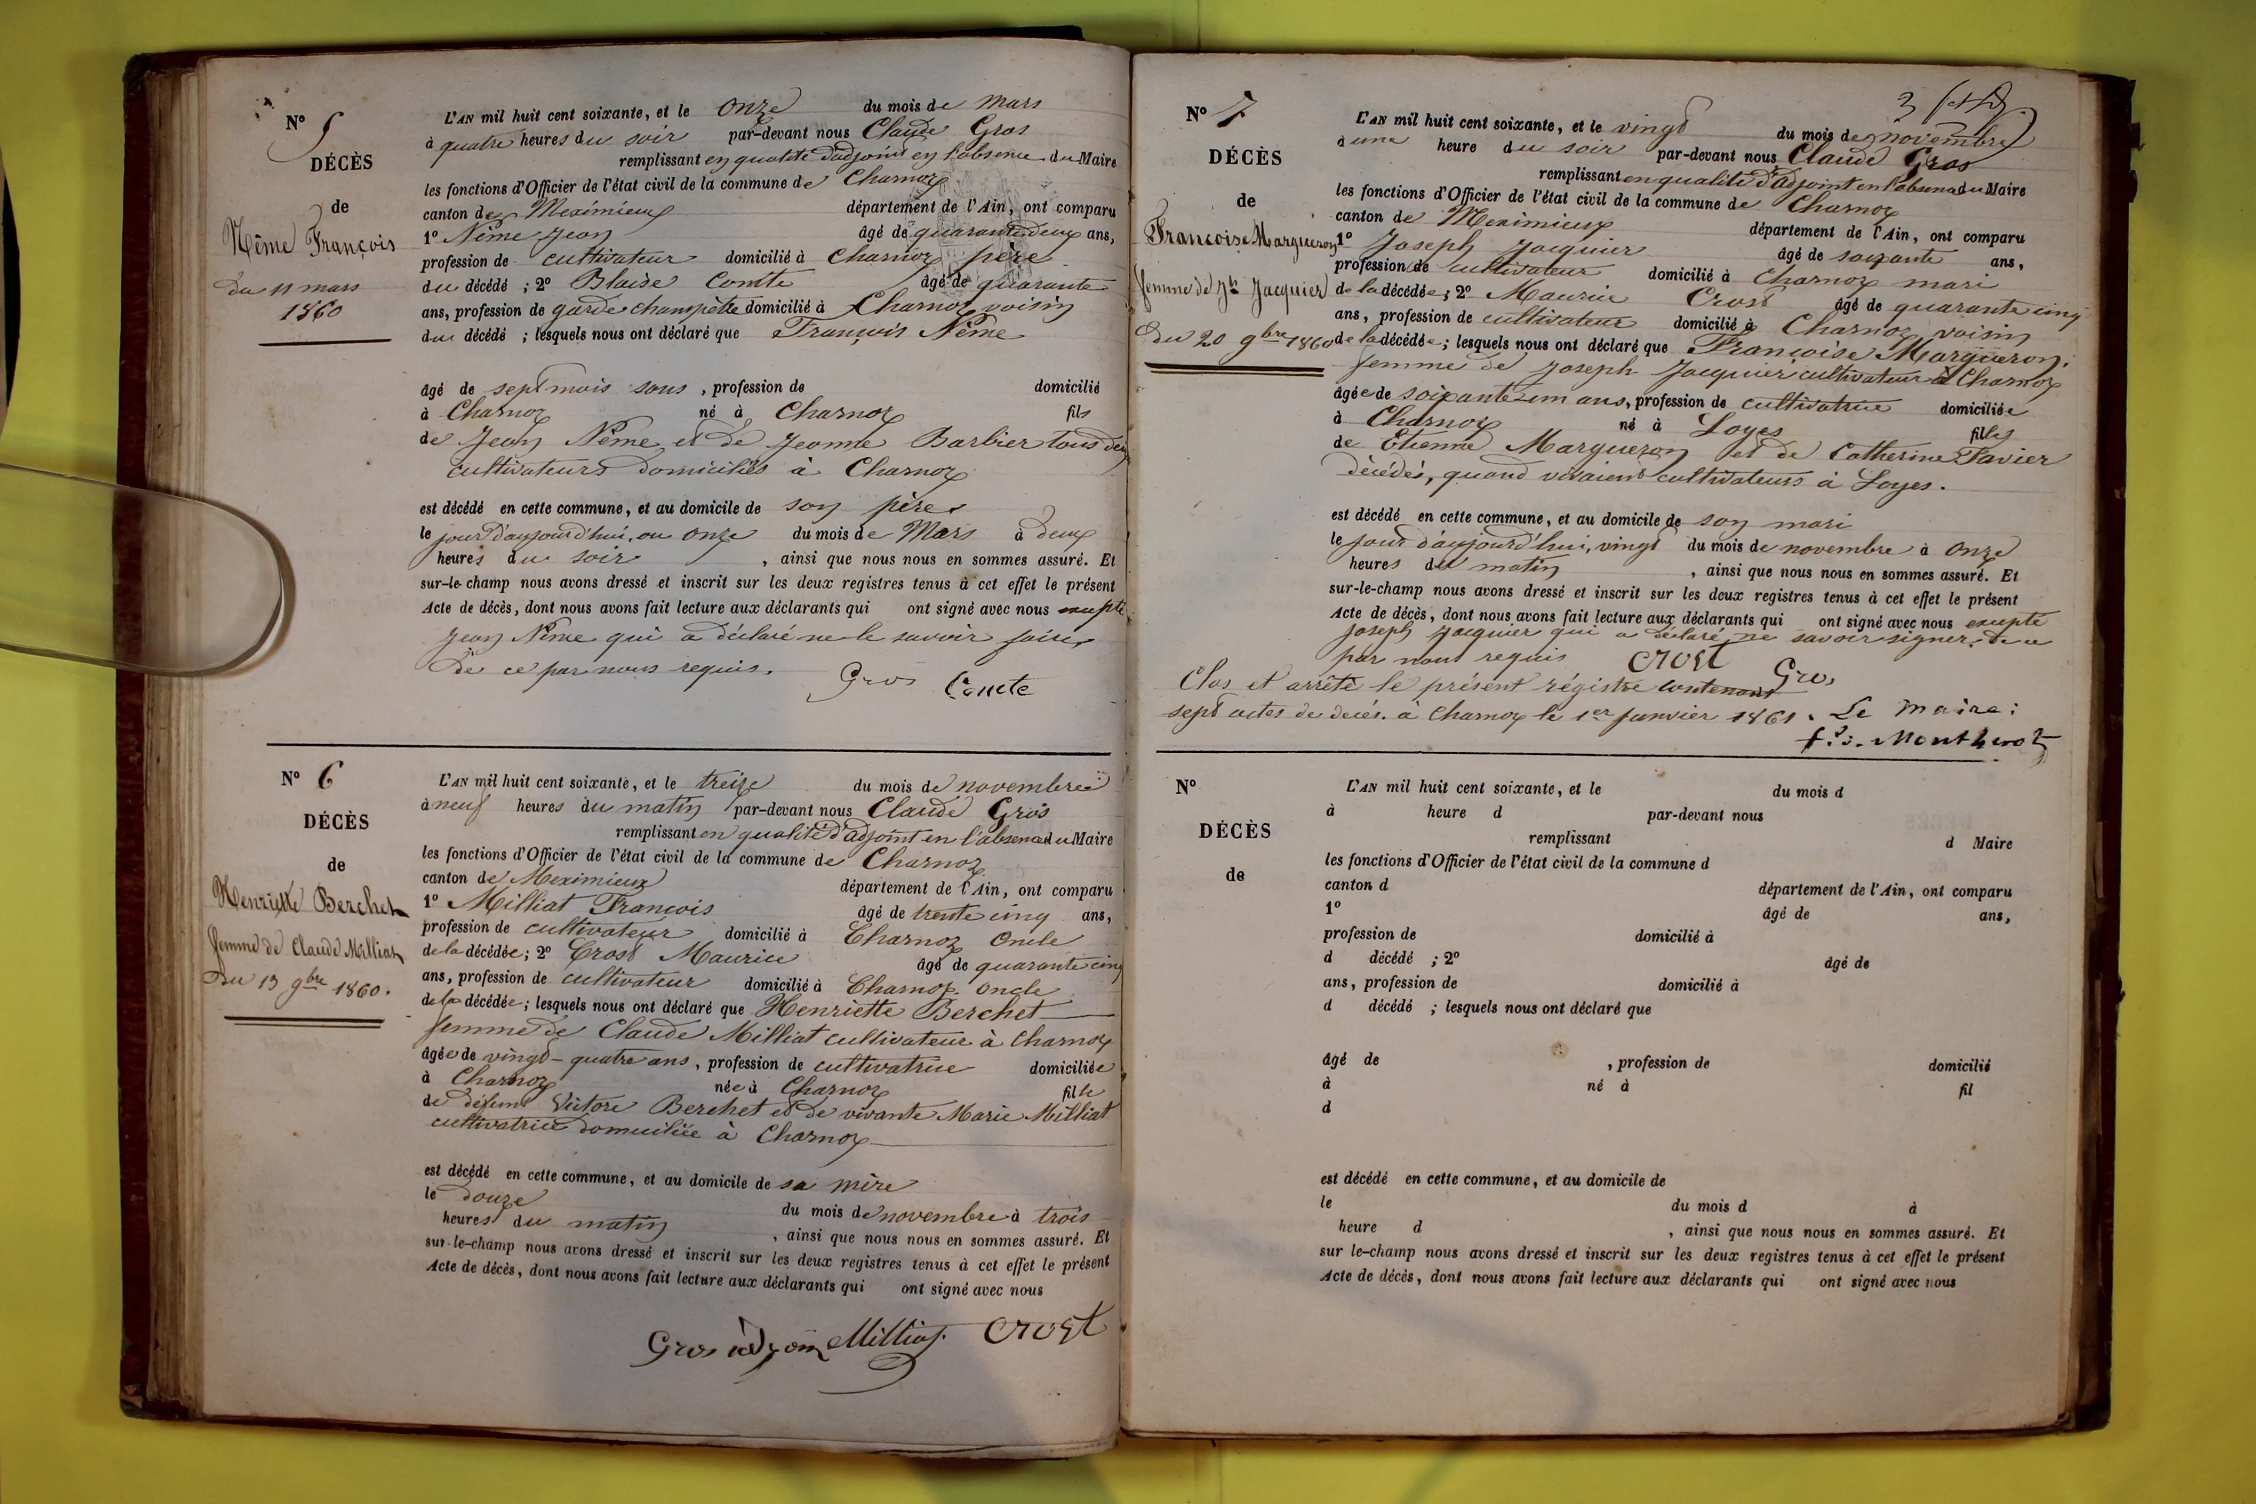 N° 5
DÉCÈS
de
Nême François
du 11 mars
1860
L'AN mil huit cent soixante, et le onze du mois de mars
à quatre heures du soir par-devant nous Claude Gros
remplissant en qualité d'adjoint en l'absence du Maire
les fonctions d'Officier de l'état civil de la commune de Charnoz
canton de Meximieux département de l'Ain, ont comparu
1° Nême Jean âgé de quarante deux ans,
profession de cultivateur domicilié à Charnoz père
du décédé ; 2° Blaise Comte âgé de quarante
ans, profession de garde champêtre domicilié à Charnoz voisin
du décédé ; lesquels nous ont déclaré que François Nême
âgé de sept mois sans , profession de domicilié
à Charnoz né à Charnoz fils
de Jean Nême et de Jeanne Barbier tous deux
cultivateurs domiciliés à Charnoz
est décédé en cette commune, et au domicile de son père
le jour d'aujourd'hui, ou onze du mois de Mars à deux
heures du soir , ainsi que nous nous en sommes assuré. Et
sur-le-champ nous avons dressé et inscrit sur les deux registres tenus à cet effet le présent
Acte de décès, dont nous avons fait lecture aux déclarants qui ont signé avec nous excepté
Jean Nême qui a déclaré ne le savoir faire,
de ce par nous requis.
Gros Comte
N° 6
DÉCÈS
de
Henriette Berchet
femme de Claude Milliat
du 13 9bre 1860.
L'AN mil huit cent soixante, et le treize du mois de novembre
à neuf heures du matin par-devant nous Claude Gros
remplissant en qualité d'adjoint en l'absence du Maire
les fonctions d'Officier de l'état civil de la commune de Charnoz
canton de Meximieux département de l'Ain, ont comparu
1° Milliat François âgé de trente cinq ans,
profession de cultivateur domicilié à Charnoz oncle
de la décédée ; 2° Crost Maurice âgé de quarante cinq
ans, profession de cultivateur domicilié à Charnoz oncle
de la décédée ; lesquels nous ont déclaré que Henriette Berchet
femme de Claude Milliat cultivateur à Charnoz
âgée de vingt-quatre ans , profession de cultivatrice domiciliée
à Charnoz née à Charnoz fille
de défunt Victore Berchet et de vivante Marie Milliat
cultivatrice domiciliée à Charnoz
est décédé en cette commune, et au domicile de sa mère
le douze du mois de novembre à trois
heures du matin , ainsi que nous nous en sommes assuré. Et
sur-le-champ nous avons dressé et inscrit sur les deux registres tenus à cet effet le présent
Acte de décès, dont nous avons fait lecture aux déclarants qui ont signé avec nous
Gros adjoin Milliat Crost
3
N° 7
DÉCÈS
de
Francoise Margueron
femme de Jh Jacquier
du 20 9bre 1860
L'AN mil huit cent soixante, et le vingt du mois de novembre
à une heure du soir par-devant nous Claude Gros
remplissant en qualité d'adjoint en l'absence du Maire
les fonctions d'Officier de l'état civil de la commune de Charnoz
canton de Meximieux département de l'Ain, ont comparu
1° Joseph Jacquier âgé de soixante ans,
profession de cultivateur domicilié à Charnoz mari
de la décédée ; 2° Maurice Crost âgé de quarante cinq
ans, profession de cultivateur domicilié à Charnoz voisin
de la décédée ; lesquels nous ont déclaré que Françoise Margueron,
femme de Joseph Jacquier cultivateur à Charnoz
âgée de soixante un ans, profession de cultivatrice domiciliée
à Charnoz né à Loyes fille
de Etienne Margueron et de Catherine Favier
décédés, quand vivaient cultivateurs à Loyes.
est décédé en cette commune, et au domicile de son mari
le jour d'aujourd'hui, vingt du mois de novembre à onze
heures du matin , ainsi que nous nous en sommes assuré. Et
sur-le-champ nous avons dressé et inscrit sur les deux registres tenus à cet effet le présent
Acte de décès, dont nous avons fait lecture aux déclarants qui ont signé avec nous excepté
Joseph Jacquier qui a déclaré ne savoir signer, de ce
par nous requis Crost Gros
Clos et arrêté le présent régistre contenant
sept actes de decés. à Charnoz le 1er janvier 1861. Le Maire :
Montherot
N°
DÉCÈS
de
L'AN mil huit cent soixante, et le du mois d
à heure d par-devant nous
remplissant d Maire
les fonctions d'Officier de l'état civil de la commune d
canton d département de l'Ain, ont comparu
1° âgé de ans,
profession de domicilié à
d décédé ; 2° âgé de
ans, profession de domicilié à
d décédé ; lesquels nous ont déclaré que
âgé de , profession de domicilié
à né à fil
d
est décédé en cette commune, et au domicile de
le du mois d à
heure d , ainsi que nous nous en sommes assuré. Et
sur le-champ nous avons dressé et inscrit sur les deux registres tenus à cet effet le présent
Acte de décès, dont nous avons fait lecture aux déclarants qui ont signé avec nous